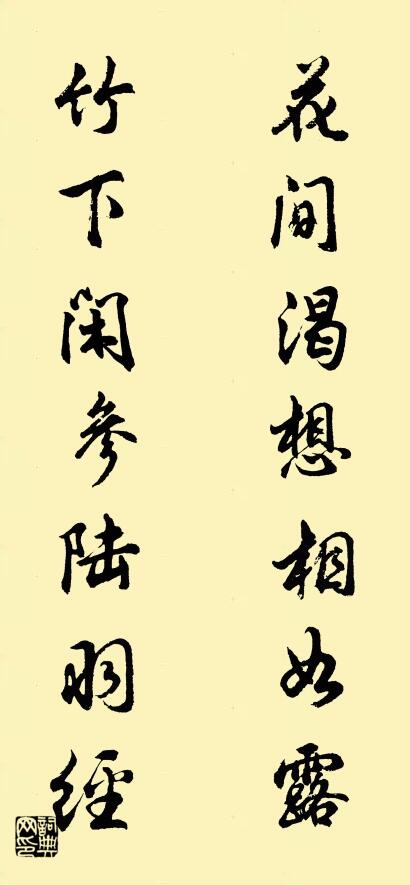 花间渴想相如露
竹下闲参陆羽经
詞典网印